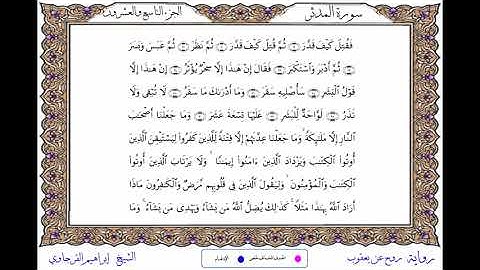 سورة المدثر
الجزء التاسع والعشرون
فَقُتِلَ كَيْفَ قَدَّرَ ثُمَّ قُتِلَ كَيْفَ قَدَّرَ ثُمَّ نَظَرَ ثُمَّ عَبَسَ وَبَسَرَ
ثُمَّ أَدْبَرَ وَاسْتَكْبَرَ فَقَالَ إِنْ هَٰذَا إِلَّا سِحْرٌ يُؤْثَرُ إِنْ هَٰذَا إِلَّا
قَوْلُ الْبَشَرِ سَأُصْلِيهِ سَقَرَ وَمَا أَدْرَىٰكَ مَا سَقَرُ لَا تُبْقِي وَلَا
تَذَرُ لَوَّاحَةٌ لِّلْبَشَرِ عَلَيْهَا تِسْعَةَ عَشَرَ وَمَا جَعَلْنَا أَصْحَٰبَ
النَّارِ إِلَّا مَلَٰئِكَةً وَمَا جَعَلْنَا عِدَّتَهُمْ إِلَّا فِتْنَةً لِّلَّذِينَ كَفَرُوا لِيَسْتَيْقِنَ الَّذِينَ
أُوتُوا الْكِتَٰبَ وَيَزْدَادَ الَّذِينَ ءَامَنُوا إِيمَٰنًا وَلَا يَرْتَابَ الَّذِينَ أُوتُوا
الْكِتَٰبَ وَالْمُؤْمِنُونَ وَلِيَقُولَ الَّذِينَ فِي قُلُوبِهِم مَّرَضٌ وَالْكَٰفِرُونَ مَاذَا
أَرَادَ اللَّهُ بِهَٰذَا مَثَلًا كَذَٰلِكَ يُضِلُّ اللَّهُ مَن يَشَاءُ وَيَهْدِي مَن يَشَاءُ وَمَا
رواية روح عن يعقوب
الإدغام
الشيخ إبراهيم الفرجاوي